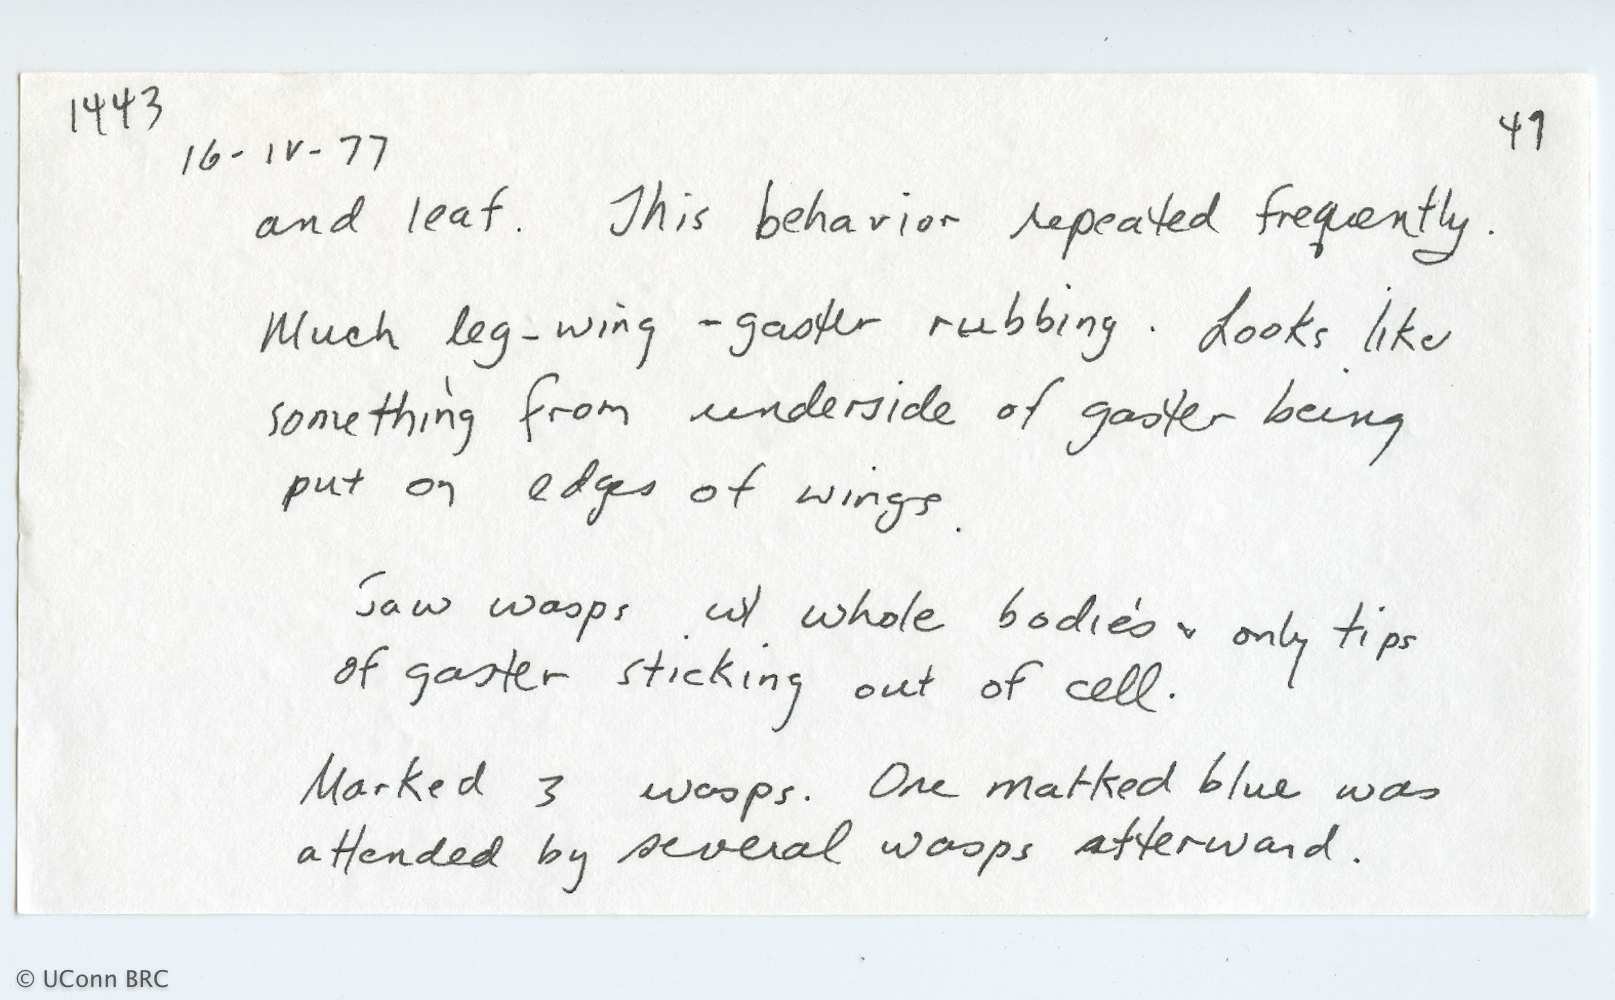 1443
49
16-IV-77
and leaf. This behavior repeated frequently.
Much leg-wing-gaster rubbing. Looks like
something from underside of gaster being
put on edges of wings.
Saw wasps w/ whole bodies & only tips
of gaster sticking out of cell.
Marked 3 wasps. One marked blue was
attended by several wasps afterward.
© UConn BRC